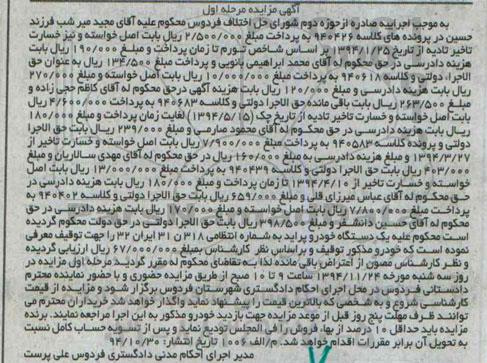 آگهی مزایده مرحله اول
به موجب اجرائیه صادره از حوزه دوم شورای حل اختلاف فردوس محکوم علیه آقای مجید میر شب فرزند
حسین در پرونده های کلاسه ۹۴۰۴۲۶ به پرداخت مبلغ ۲/۵۰۰/۰۰۰ ریال بابت اصل خواسته و نیز خسارت
تاخیر تادیه از تاریخ ۱۳۹۴/۱/۲۵ بر اساس شاخص تورم تا زمان پرداخت و مبلغ ۱۹۰/۰۰۰ ریال بابت
هزینه دادرسی در حق محکوم له آقای محمد ابراهیمی بانویی و پرداخت مبلغ ۱۳۴/۵۰۰ ریال به عنوان حق
الاجرا، دولتی و کلاسه ۹۴۰۶۱۸ به پرداخت مبلغ ۱۰/۰۰۰/۰۰۰ ریال بابت اصل خواسته و مبلغ ۲۷۰/۰۰۰
ریال بابت هزینه دادرسی و مبلغ ۱۲۰/۰۰۰ ریال بابت هزینه آگهی درحق محکوم له آقای کاظم حجی زاده و
مبلغ ۲۶۳/۵۰۰ ریال بابت باقی مانده حق الاجرا دولتی و کلاسه ۹۴۰۶۸۳ به پرداخت ۴/۶۰۰/۰۰۰ ریال
بابت اصل خواسته و خسارت تاخیر تادیه از تاریخ چک (۱۳۹۴/۵/۱۵) لغایت زمان پرداخت و مبلغ ۱۸۰/۰۰۰
ریال بابت هزینه دادرسی در حق محکوم له آقای محمود صارمی و مبلغ ۲۳۹/۰۰۰ ریال بابت حق الاجرا
دولتی و پرونده کلاسه ۹۴۰۵۸۳ به پرداخت مبلغ ۷/۹۰۰/۰۰۰ ریال بابت اصل خواسته و خسارت تاخیر از
۱۳۹۴/۳/۲۷ و مبلغ هزینه دادرسی به مبلغ ۱۶۰/۰۰۰ ریال در حق محکوم له آقای مهدی سالاریان و مبلغ
۴۰۳/۰۰۰ ریال بابت حق الاجرا دولتی و کلاسه ۹۴۰۴۳۹ به پرداخت مبلغ ۱۳/۰۰۰/۰۰۰ ریال بابت اصل
خواسته و خسارت تاخیر از ۱۳۹۴/۴/۱۰ تا زمان پرداخت و مبلغ ۱۸۰/۰۰۰ ریال بابت هزینه دادرسی در
حق محکوم له آقای عباس میرزای قلی و مبلغ ۶۵۹/۰۰۰ ریال بابت حق الاجرا دولتی و کلاسه ۹۴۰۴۰۲ به
پرداخت مبلغ ۷/۸۰۰/۰۰۰ ریال بابت اصل خواسته و مبلغ ۱۷۰/۰۰۰ ریال بابت هزینه دادرسی در حق
محکوم له آقای حسین دانشگر و مبلغ ۳۹۸/۵۰۰ ریال بابت حق الاجرا دولتی در حق دولت محکوم گردیده
است محکوم علیه یک دستگاه خودرو پراید به شماره انتظامی ۳۱۸ ن ۳۱ ایران ۳۲ را جهت توقیف معرفی
نموده است که خودرو مذکور توقیف و براساس نظر کارشناس بمبلغ ۶۷/۰۰۰/۰۰۰ ریال ارزیابی گردیده
و نظر کارشناس مصون از اعتراض باقی مانده لذا به تقاضای محکوم له مقرر گردید مرحله اول مزایده در
روز سه شنبه مورخه ۱۳۹۴/۱۱/۲۴ ساعت ۹ تا ۱۰ صبح از طریق مزایده حضوری و با حضور نماینده محترم
دادستانی فردوس در محل اجرای احکام دادگستری شهرستان فردوس برگزار شود و مزایده از قیمت
کارشناسی شروع و به شخصی که بالاترین قیمت را پیشنهاد نماید واگذار خواهد شد خریداران محترم می
توانند ظرف مهلت پنج روز قبل از موعد مزایده جهت بازدید خودرو مذکور به این اجرا مراجعه نمایند. برنده
مزایده باید حداقل ۱۰ درصد از بهاء فروش را فی المجلس تودیع نماید و پس از تسویه حساب کامل نسبت
به تحویل آن برابر مقررات اقدام خواهد شد. م/الف 1006 تاریخ انتشار: ۹۴/۱۰/۳۰
مدیر اجرای احکام مدنی دادگستری فردوس علی پرست